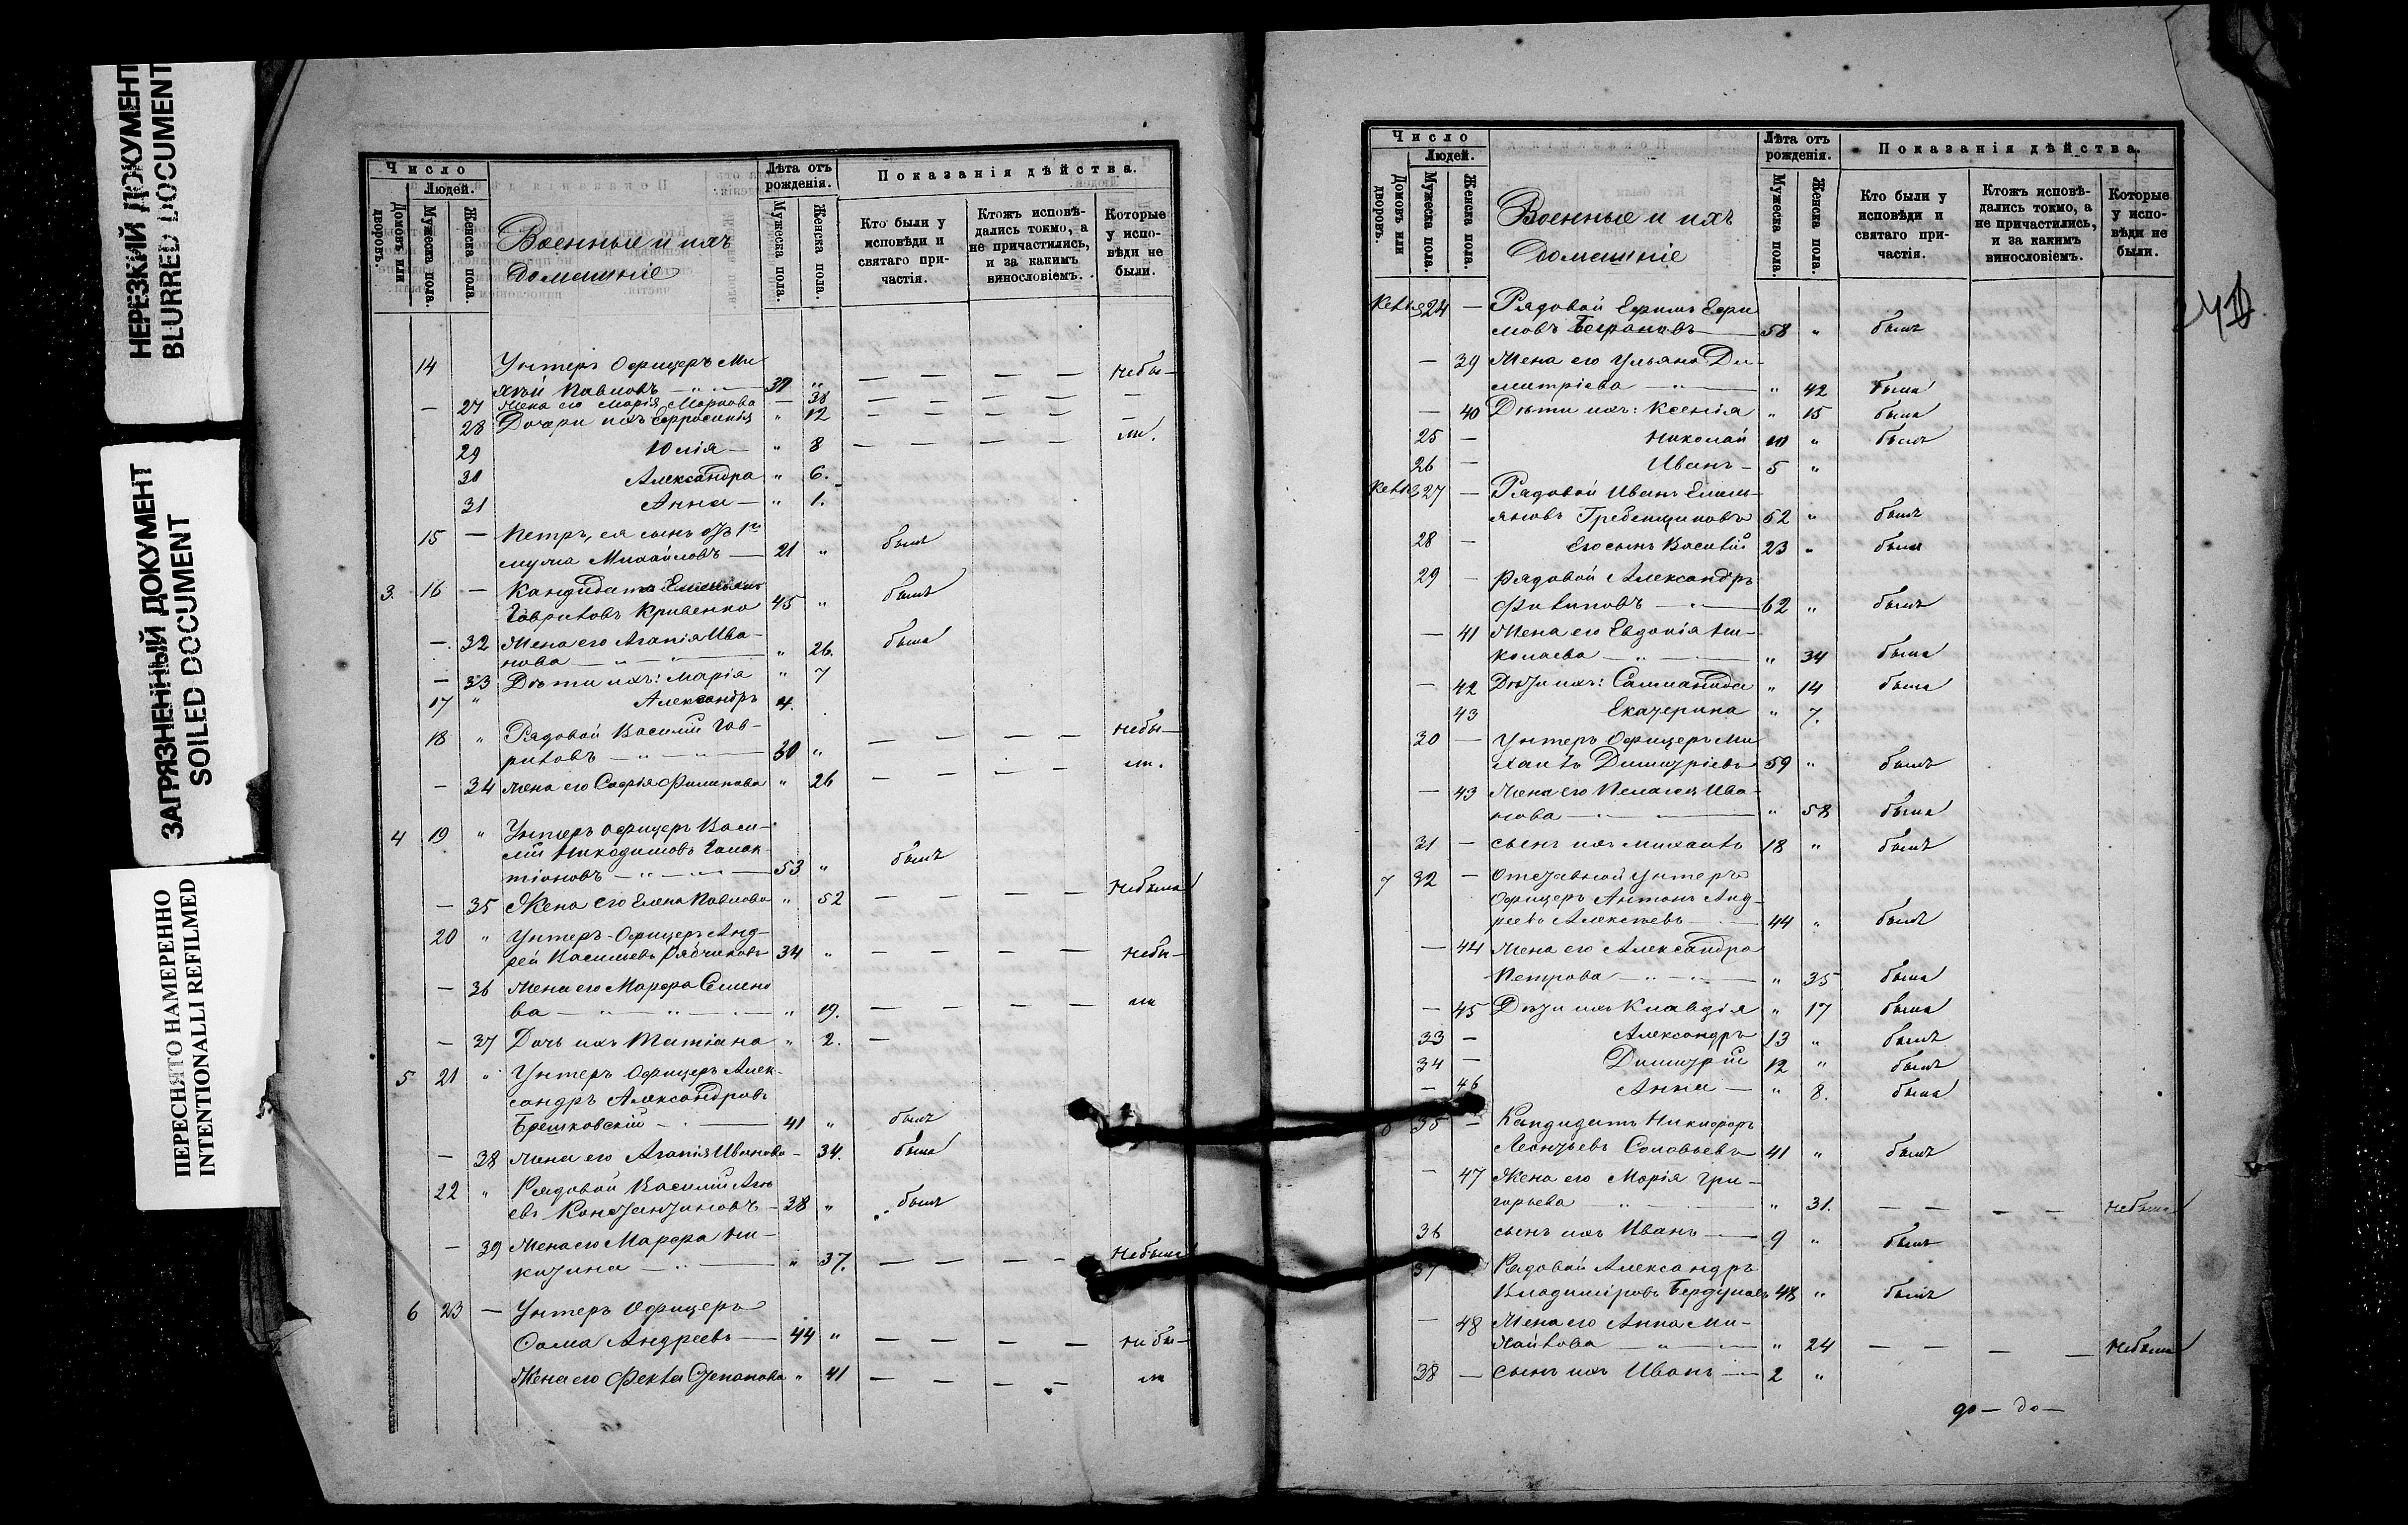 НЕРЕЗКИЙ ДОКУМЕНТ
BLURRED DOCUMENT
ЗАГРЯЗНЕННЫЙ ДОКУМЕНТ
SOILED DOCUMENT
ПЕРЕСНЯТО НАМЕРЕННО
INTENTIONALLI REFILMED
Число
Людей.
Домовъ или дворовъ.
Мужеска пола.
Женска пола.
Военные и ихъ
домашніе
Лѣта отъ рожденія.
Мужеска пола.
Женска пола.
Показанія дѣйства.
Кто были у исповѣди и святаго причастія.
Ктожъ исповѣдались токмо, а не причастились, и за какимъ винословіемъ.
Которые у исповѣди не были.
14 Унтеръ Офицеръ Ми
Павловъ — " — 37 " — — — — небы—
— 27 Жена его Марія Маркова — 38 — — — — —
28 Дочери ихъ Ефросинія " 12 — — — — —
29 Юлія — " 8 — — — — ли.
30 Александра " 6.
31 Анна — " 1.
15 — Петръ, ея сынъ отъ 1го
мужа Михайловъ — 21 " былъ
3. 16 — Кандидатъ Емельянъ
Гавриловъ Кривенко 45 " былъ
— 32 Жена его Агапія Ива-
нова — " — " — " 26. была
— 33 Дѣти ихъ: Марія " 7
17 " Александръ 4.
18 " Рядовой Василій Гав-
риловъ — " — " — 30 " — — — — небы—
— 34 Жена его Софія Филипова " 26 — — — — ли.
4 19 " Унтеръ Офицеръ Васи-
лій Никодимовъ Галак-
тіоновъ — " — 53 " былъ
— 35 Жена его Елена Павлова " 52 — — — — небыла
20 " Унтеръ-Офицеръ Анд-
рей Васильевъ Рябчиковъ 34 " — — — — небы—
— 36 Жена его Марфа Семено
ва — " — " — " 19. — — — — ли
— 37 Дочь ихъ Татіана " 2. —
5 21 " Унтеръ Офицеръ Алек-
сандръ Александровъ
Брешковскій — 41 " былъ
— 38 Жена его Агапія Иванова — 34. была
22 " Рядовой Василій
евъ Константиновъ — 38 " былъ
— 39 Жена его Марфа Ни-
китина — " — " 37. — — — — Небыла
6 23 — Унтеръ Офицеръ
Ѳома Андреевъ — 44 " — — — — небы—
Жена его Фекла Степанова " 41 — — — — ли
Число
Людей.
Домовъ или дворовъ.
Мужеска пола.
Женска пола.
Военные и ихъ
домашніе
Лѣта отъ рожденія.
Мужеска пола.
Женска пола.
Показанія дѣйства.
Кто были у исповѣди и святаго причастія.
Ктожъ исповѣдались токмо, а не причастились, и за какимъ винословіемъ.
Которые у исповѣди не были.
24 — Рядовой Ефимъ Ефи
мовъ — 58 " былъ
— 39 Жена его Ульяна Ди-
митріева — " — " 42 была
— 40 Дѣти ихъ: Ксенія " 15 была
25 — Николай 10 " былъ
26 — Иванъ — 5 "
27 — Рядовой Иванъ Емель-
яновъ Гребенщиковъ 52 " былъ
28 — Его сынъ Василій 23 " былъ
29 — Рядовой Александръ
Филиповъ — " — 62 " былъ
— 41 Жена его Евдокія Ни-
колаева — " — " 34 была
— 42 Дѣти ихъ: Саломонида " 14 была
43 Екатерина " 7.
30 — Унтеръ Офицеръ Ми
хаилъ Димитріевъ 59 " былъ
— 43 Жена его Пелагея Ива-
нова — " — " 58 была
31 — Сынъ ихъ Михаилъ 18 " былъ
7 32 — Отставной Унтеръ
Офицеръ Антонъ Анд-
реевъ Алексѣевъ — 44 " былъ
— 44 Жена его Александра
Петрова — " — " 35 была
— 45 Дѣти ихъ Клавдія " 17 была
33 — Александръ 13 " былъ
34 — Димитрій 12 " былъ
— 46 Анна — " 8. была
35 — Кандидатъ Никифоръ
Леонтьевъ Соловьевъ 41 " былъ
— 47 Жена его Марія Гри-
горьева — " — " 31. — — — — небыла
36 сынъ ихъ Иванъ — 9 " былъ
37 Рядовой Александръ
Владиміровъ 48 " былъ
— 48 Жена его Анна Ми-
хайлова — " — " 24 — — — — небыла
38 — Сынъ ихъ Иванъ — 2 "